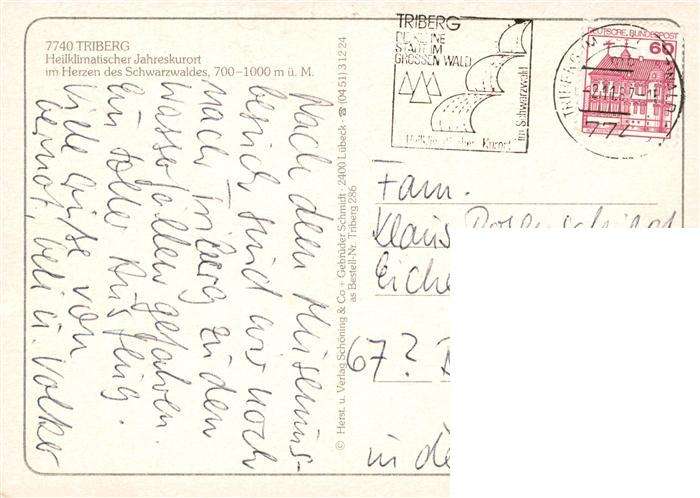 7740 TRIBERG
Heilklimatischer Jahreskurort
im Herzen des Schwarzwaldes, 700–1000 m ü. M.
Nach dem Museums-
besuch sind wir noch
nach Triberg zu den
Wasserfällen gefahren.
Ein toller Ausflug.
Viele Grüße von
Volker
© Herst. u. Verlag Schöning & Co + Gebrüder Schmidt · 2400 Lübeck ☎ (04 51) 3 12 24
as Bestell-Nr. Triberg 286
TRIBERG
DIE KLEINE
STADT IM
GROSSEN WALD
im Schwarzwald
Heilklimatischer Kurort
DEUTSCHE BUNDESPOST
60
TRIBERG
Fam.
Klaus
Eiche
67
in de